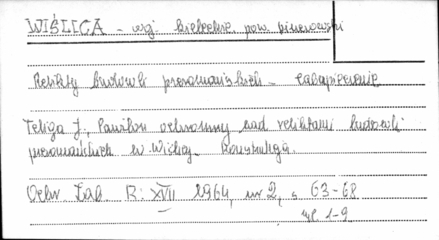 WIŚLICA - woj. kieleckie pow. pińczowski
Relikty budowli preromańskich - zabezpieczenie
Teliga J., Pawilon ochronny nad reliktami budowli
preromańskich w Wiślicy.
Ochr. Zab. R: XVII 1964, nr 2, s 63-68
il. 1-9